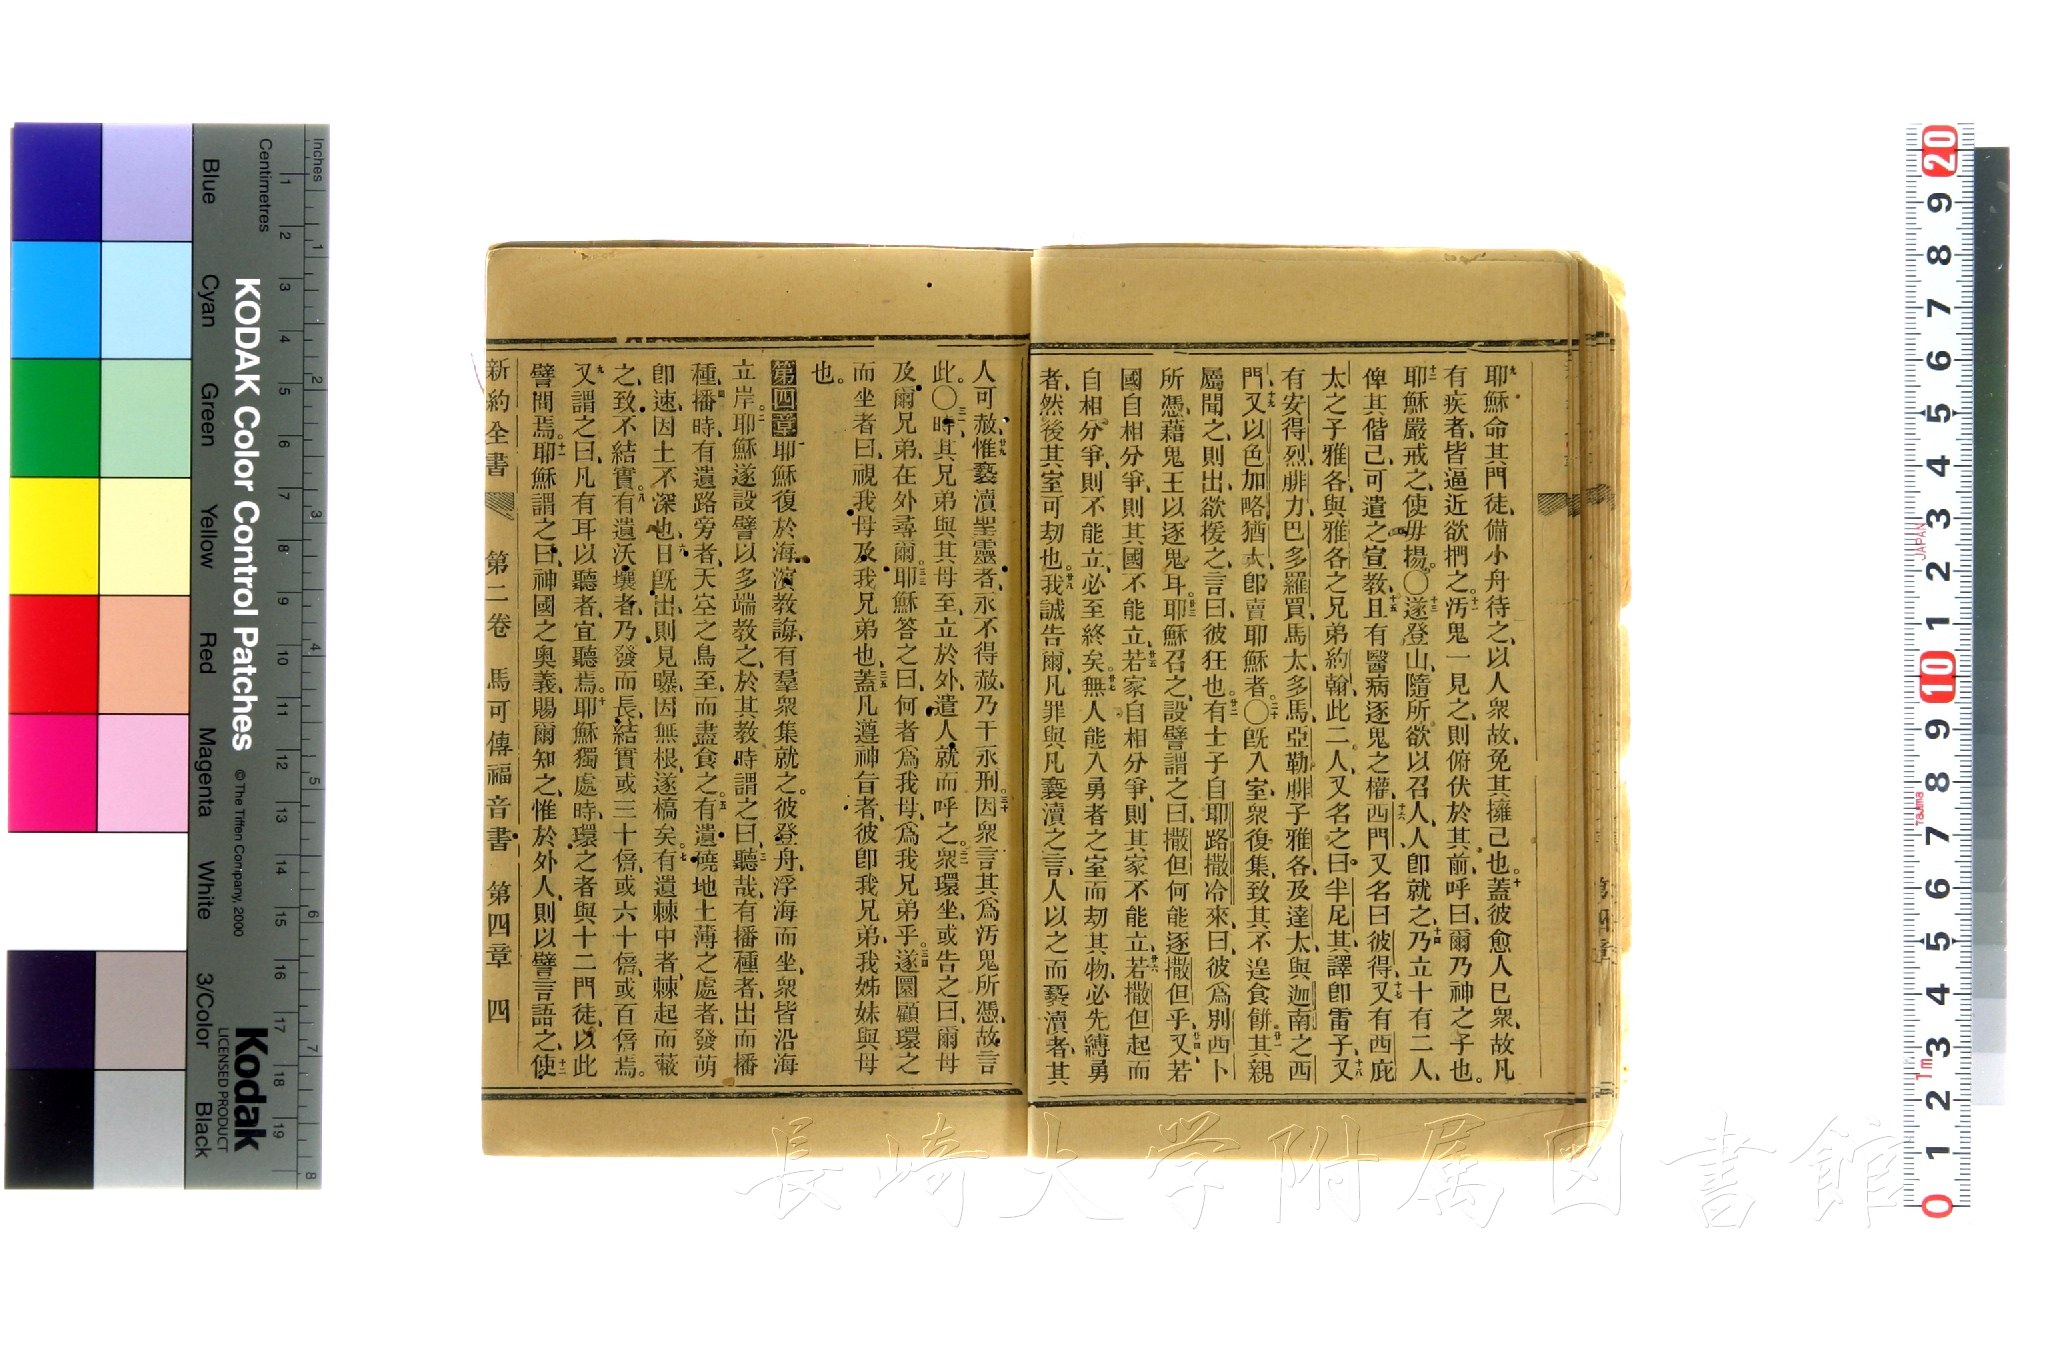 耶穌命其門徒、備小舟待之、以人衆故、免其擁己也。蓋彼愈人已衆、故凡
有疾者、皆逼近欲捫之。汚鬼一見之、則俯伏於其前、呼曰、爾乃神之子也。
耶穌嚴戒之、使毋揚。〇遂登山、隨所欲以召人、人卽就之、乃立十有二人、
俾其偕己、可遣之宣教、且有醫病逐鬼之權、西門又名曰彼得、又有西庇
太之子雅各、與雅各之兄弟約翰、此二人又名之曰半尼其、譯卽雷子、又
有安得烈、腓力、巴多羅買、馬太、多馬、亞勒腓子雅各、及達太、與迦南之西
門、又以色加畧猶大、卽賣耶穌者。〇旣入室、衆復集、致其不遑食餅。其親
屬聞之、則出欲援之、言曰、彼狂也。有士子自耶路撒冷來、曰、彼爲別西卜
所憑、藉鬼王以逐鬼耳。耶穌召之、設譬謂之曰、撒但何能逐撒但乎、又若
國自相分爭、則其國不能立、若家自相分爭、則其家不能立、若撒但起而
自相分爭、則不能立、必至終矣。無人能入勇者之室、而劫其物、必先縛勇
者、然後其室可劫也。我誠告爾、凡罪與凡褻瀆之言、人以之而褻瀆者、其
人可赦、惟褻瀆聖靈者、永不得赦、乃干永刑。因衆言其爲汚鬼所憑、故言
此。〇時其兄弟與其母至、立於外、遣人就而呼之。衆環坐、或告之曰、爾母
及爾兄弟、在外尋爾。耶穌答之曰、何者爲我母、爲我兄弟乎。遂圜顧環之
而坐者曰、視我母及我兄弟也、蓋凡遵神旨者、彼卽我兄弟、我姊妹、與母
也。
第四章 耶穌復於海濱教誨、有羣衆集就之。彼登舟、浮海而坐、衆皆沿海
立岸。耶穌遂設譬、以多端教之、於其教時、謂之曰、聽哉、有播種者、出而播
種、播時有遺路旁者、天空之鳥至而盡食之。有遺磽地土薄之處者、發萌
卽速、因土不深也、日旣出、則見曝、因無根、遂槁矣。有遺棘中者、棘起而蔽
之、致不結實。有遺沃壤者、乃發而長、結實、或三十倍、或六十倍、或百倍焉。
又謂之曰、凡有耳以聽者、宜聽焉。耶穌獨處時、環之者與十二門徒、以此
譬問焉。耶穌謂之曰、神國之奧義、賜爾知之、惟於外人、則以譬言語之、使
新約全書 第二卷 馬可傳福音書 第四章 四
長崎大学附属図書館
KODAK Color Control Patches
© The Tiffen Company, 2000
Kodak
LICENSED PRODUCT
Inches
Centimetres
Blue Cyan Green Yellow Red Magenta White 3/Color Black
1 2 3 4 5 6 7 8 9 10 11 12 13 14 15 16 17 18 19
1 2 3 4 5 6 7 8
20 9 8 7 6 5 4 3 2 1 10 9 8 7 6 5 4 3 2 1 0
JAPAN
Tajima
1m